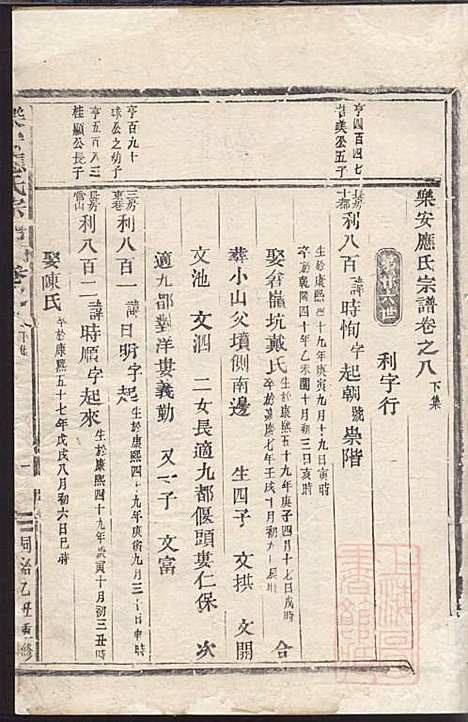 樂安應氏宗譜卷之八 下集
利字行
亨四百四七
昔美公五子
利八百 諱時恂字起朝號崇階
生於康熙四十九年庚寅九月十九日寅時
卒於乾隆四十年乙未閏十月初三日亥時
娶 坑戴氏
生於康熙五十九年庚子四月十七日戌時
卒於嘉慶七年壬戌十月初九 辰時
合
葬小山父墳側南邊 生四子 文拱 文開
文池 文泗 二女長適九都偃頭婁仁保 次
適九都對洋婁義勤 又一子 文富
亨百九十
公之幼子
利八百一 諱日昕字起
生於康熙四十九年庚寅九月三十日申時
亨五百八三
桂顯公長子
利八百二 諱時順字起來
生於康熙四十九年庚寅十月初三丑時
娶陳氏
卒於康熙五十七年戊戌八月初六日巳時
同治乙丑重修